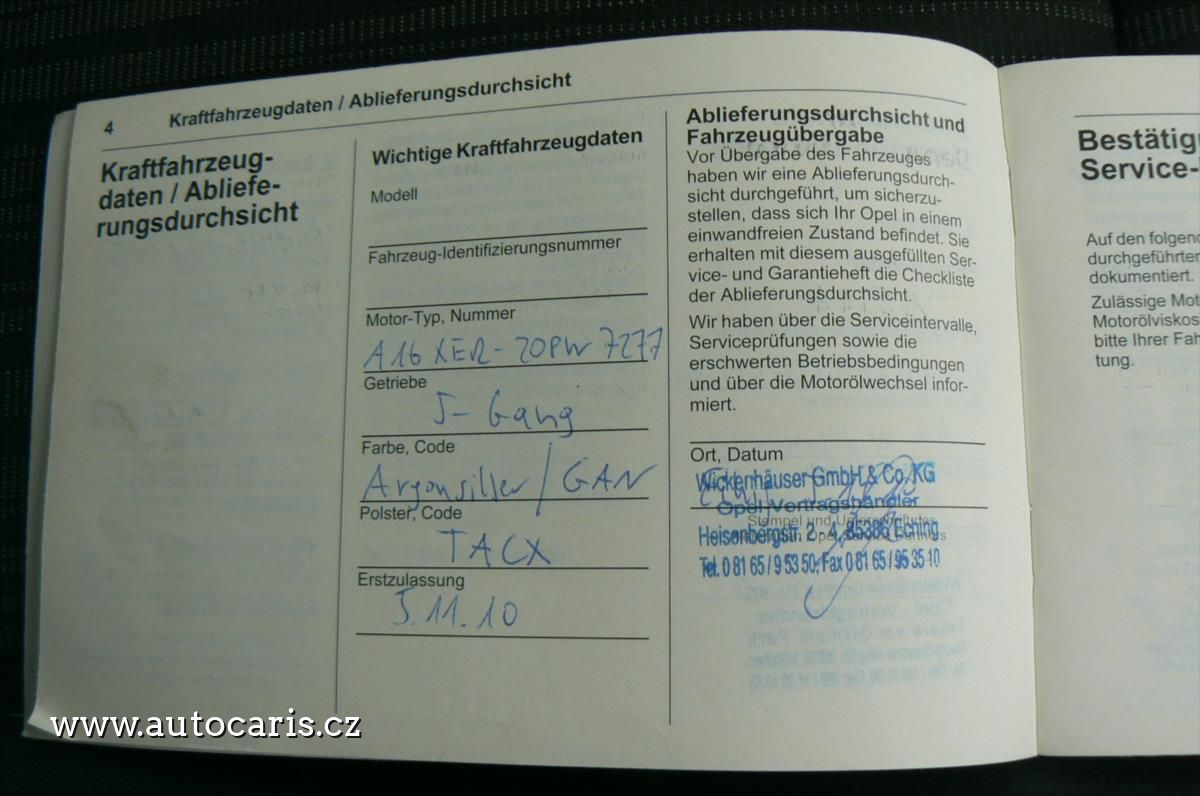 4
Kraftfahrzeugdaten / Ablieferungsdurchsicht
Kraftfahrzeug-
daten / Abliefe-
rungsdurchsicht
Wichtige Kraftfahrzeugdaten
Modell
Fahrzeug-Identifizierungsnummer
Motor-Typ, Nummer
A16 XER - 20PW 7277
Getriebe
5-Gang
Farbe, Code
Argonsilber / GAN
Polster, Code
TACX
Erstzulassung
5.11.10
Ablieferungsdurchsicht und
Fahrzeugübergabe
Vor Übergabe des Fahrzeuges
haben wir eine Ablieferungsdurch-
sicht durchgeführt, um sicherzu-
stellen, dass sich Ihr Opel in einem
einwandfreien Zustand befindet. Sie
erhalten mit diesem ausgefüllten Ser-
vice- und Garantieheft die Checkliste
der Ablieferungsdurchsicht.
Wir haben über die Serviceintervalle,
Serviceprüfungen sowie die
erschwerten Betriebsbedingungen
und über die Motorölwechsel infor-
miert.
Ort, Datum
Wickenhäuser GmbH & Co. KG
Opel-Vertragshändler
Stempel und Unterschrift des
Heisenbergstr. 2 - 4, 85386 Eching
Tel. 0 81 65 / 9 53 50, Fax 0 81 65 / 95 35 10
Bestätig
Service-
Auf den folgend
durchgeführten
dokumentiert.
Zulässige Mot
Motorölviskos
bitte Ihrer Fah
tung.
www.autocaris.cz